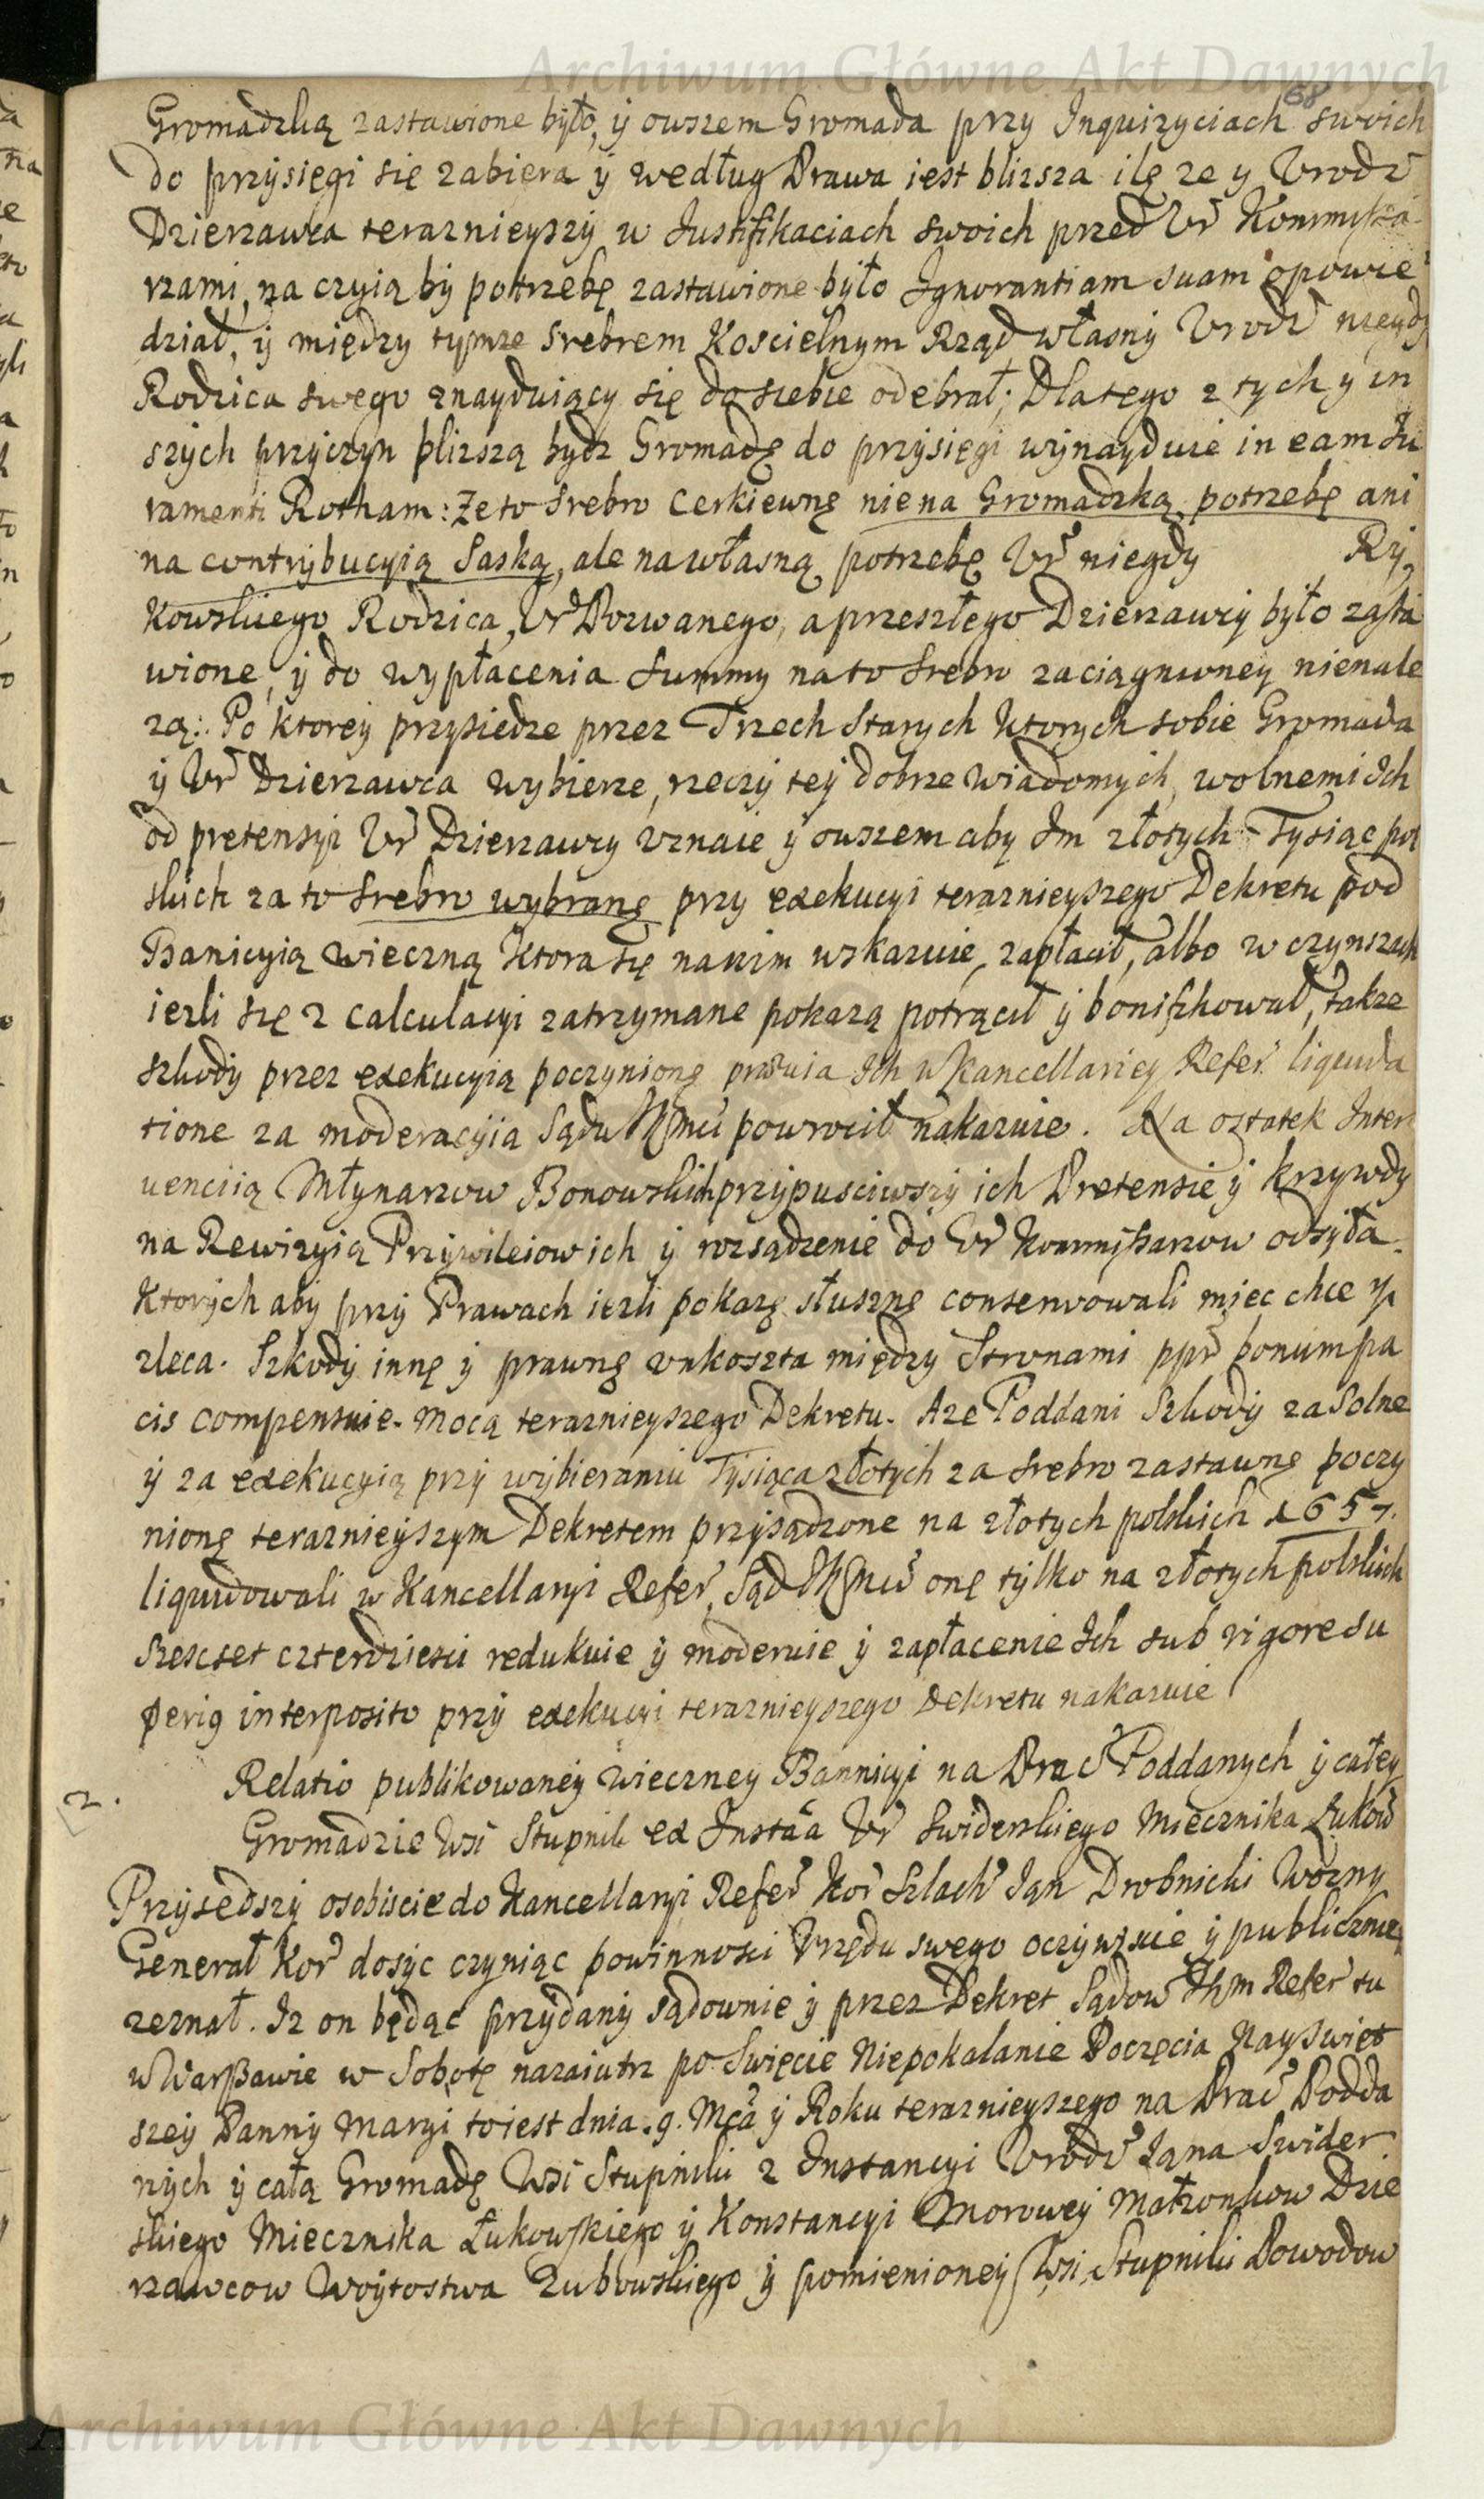 Archiwum Główne Akt Dawnych
68
Gromadzką zastawione było, ÿ owszem Gromada przy Inquizyciach swoich
do przysięgi się zabiera ÿ według Prawa iest blizsza ilę ze y Vrodz
Dzierzawca teraznieyszÿ w Justifikaciach swoich przed Ur Kommyssa-
rzami, na czyią bÿ potrzebę zastawione było Ignorantiam suam opowie
dział, ÿ między tymze srebrem Koscielnym Rząd własnÿ Vrodz niegdy
Rodzica swego znayduiący się do siebie odebrał; Dlatego z tych y in
szych przÿczyn blizszą bydz Gromadę do przÿsięgi wÿnayduie in eam Ju
ramenti Rotham: Ze to srebro Cerkiewnę nie na Gromadzką potrzebę ani
na contrÿbucyią Saską, ale na własną potrzebę Ur niegdy Rÿ
kowskiego Rodzica, Ur Pozwanego, a przeszłego Dzierzawcÿ było zasta
wione, ÿ do wypłacenia summy na to srebro zaciągnioney nienale
zą: Po ktoreÿ przysiedze przez Trzech Starych ktorych sobie Gromada
ÿ Ur Dzierzawca wybierze, rzeczÿ teÿ dobrze wiadomych, wolnemi Ich
od pretensÿi Ur Dzierzawcy vznaie ÿ owszem aby Im złotych Tysiąc pol
skich za to srebro wybranę przy exekucyi terazniejszego Dekretu pod
Banicyią wieczną ktora się na nim wskazuie, zapłacił, albo w czynszach
iezli się z calculacyi zatrzymane pokazą potrącił ÿ bonifikował, takze
szkodÿ przez exekucyią poczynionę Ich w Kancellariey Refer liquida
tione za moderacyia Sądu powrocił nakazuie. Na ostatek Inter
uenciią Młynarzow Bonowskich przÿpusciwszÿ ich Pretensie ÿ krzywdy
na Rewizyią Przÿwileiow ich ÿ rozsądzenie do Ur Kommissarzow odsÿła.
Ktorÿch abÿ przÿ Prawach iezli pokazę słusznę conserwowali miec chce y
zleca. Szkodÿ innę ÿ prawnę vnkoszta między Stronami ppr bonum pa
cis compensuie. Mocą terazniejszego Dekretu. A ze Poddani Szkodÿ za Solne
ÿ za exekucyią przÿ wÿbieraniu Tysiąca złotych za srebro zastawnę poczy
nionę terazniejszym Dekretem przÿsądzone na złotych polskich 1657.
liquidowali w Kancellaryi Refer, Sąd onę tÿlko na złotych polskich
szescset czterdziesci redukuie ÿ moderuie ÿ zapłacenie Ich sub rigore su
perią interposito przÿ exekucyi terazniejszego Dekretu nakazuie
2. Relatio publikowaneÿ wieczney Bannicyi na Prac Poddanych ÿ całey
Gromadzie Wsi Stupnik ex Instãa Ur Swiderskiego Miecznika Łukow
Przÿszedszÿ osobiscie do Kancellaryi Refer Kor Szlach Jan Drobnicki Wozny
Generał Kor dosÿc czyniąc powinnosci Vrzędu swego oczÿwiscie ÿ publicznie
zeznał. Iz on będąc przÿdanÿ sądownie ÿ przez Dekret Sądow Refer tu
w Warssawie w Sobotę nazaiutrz po Święcie Niepokalanie Poczęcia Nayswięt
szeÿ Pannÿ Maryi to iest dnia .9. Mca ÿ Roku terazniejszego na Prac Podda
nÿch ÿ całą Gromadę Wsi Stupniku z Instancyi Vrodz Jana Swider
skiego Miecznika Łukowskiego ÿ Konstancyi Morowey Małzonkow Dzie
rzawcow Woÿtostwa Zubowskiego ÿ pomienioneÿ Wsi Stupniku Powodow
Archiwum Główne Akt Dawnych